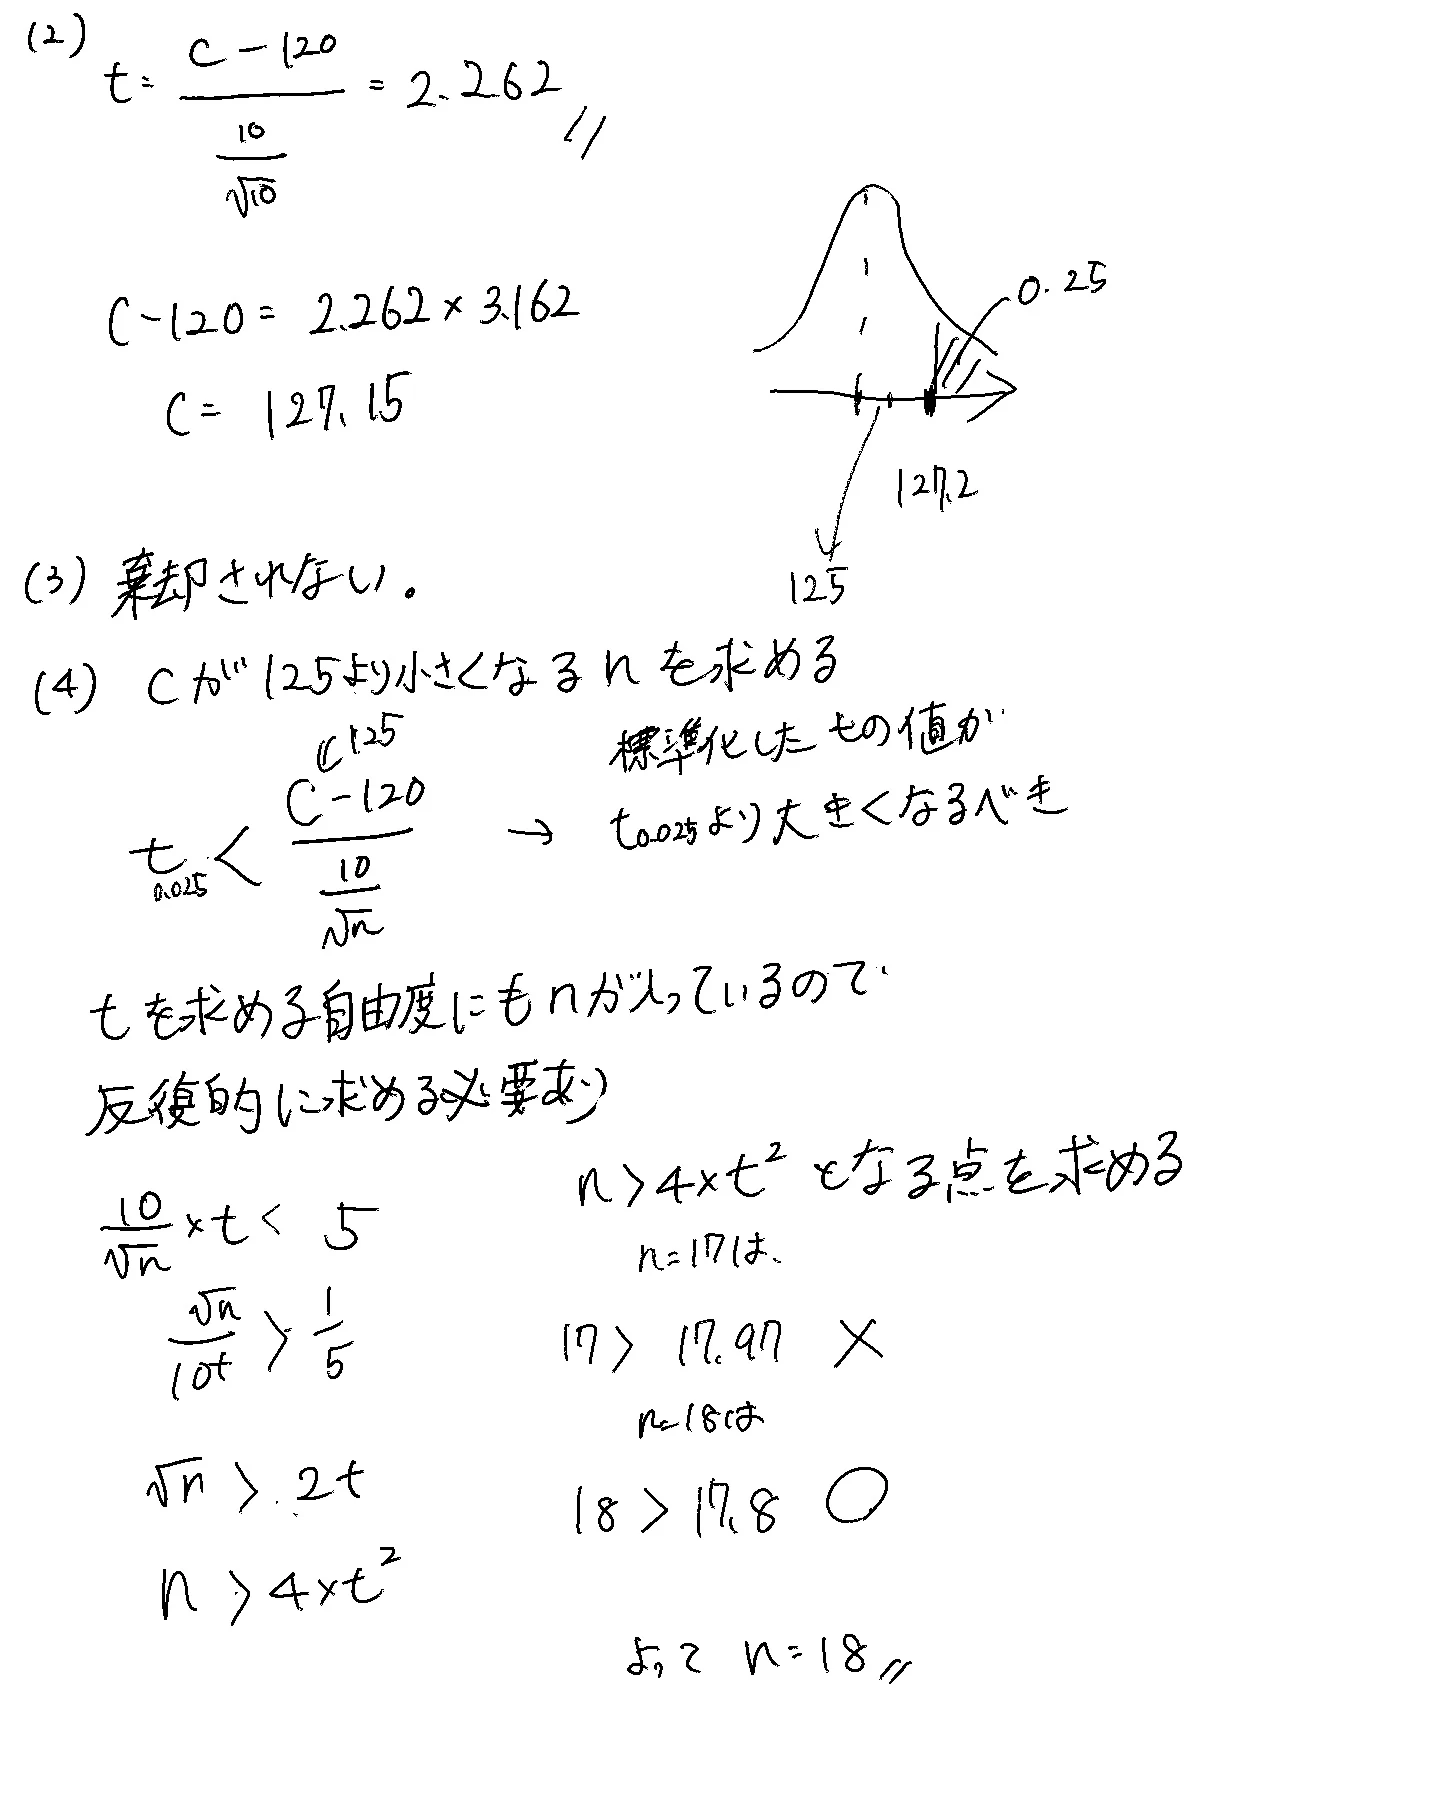 (2)
t = \frac{C-120}{\frac{10}{\sqrt{10}}} = 2.262 //
C-120 = 2.262 × 3.162
C = 127.15
0.25
127.2
125
(3) 棄却されない.
(4) Cが125より小さくなるnを求める
125
t_{0.025} < \frac{C-120}{\frac{10}{\sqrt{n}}} → 標準化したtの値が
t_{0.025}より大きくなるべき
tを求める自由度にもnが入っているので
反復的に求める必要あり
\frac{10}{\sqrt{n}} × t < 5
\frac{\sqrt{n}}{10t} > \frac{1}{5}
\sqrt{n} > 2t
n > 4×t^2
n > 4×t^2 となる点を求める
n=17は、
17 > 17.97 ×
n=18は
18 > 17.8 ○
よって n=18 //